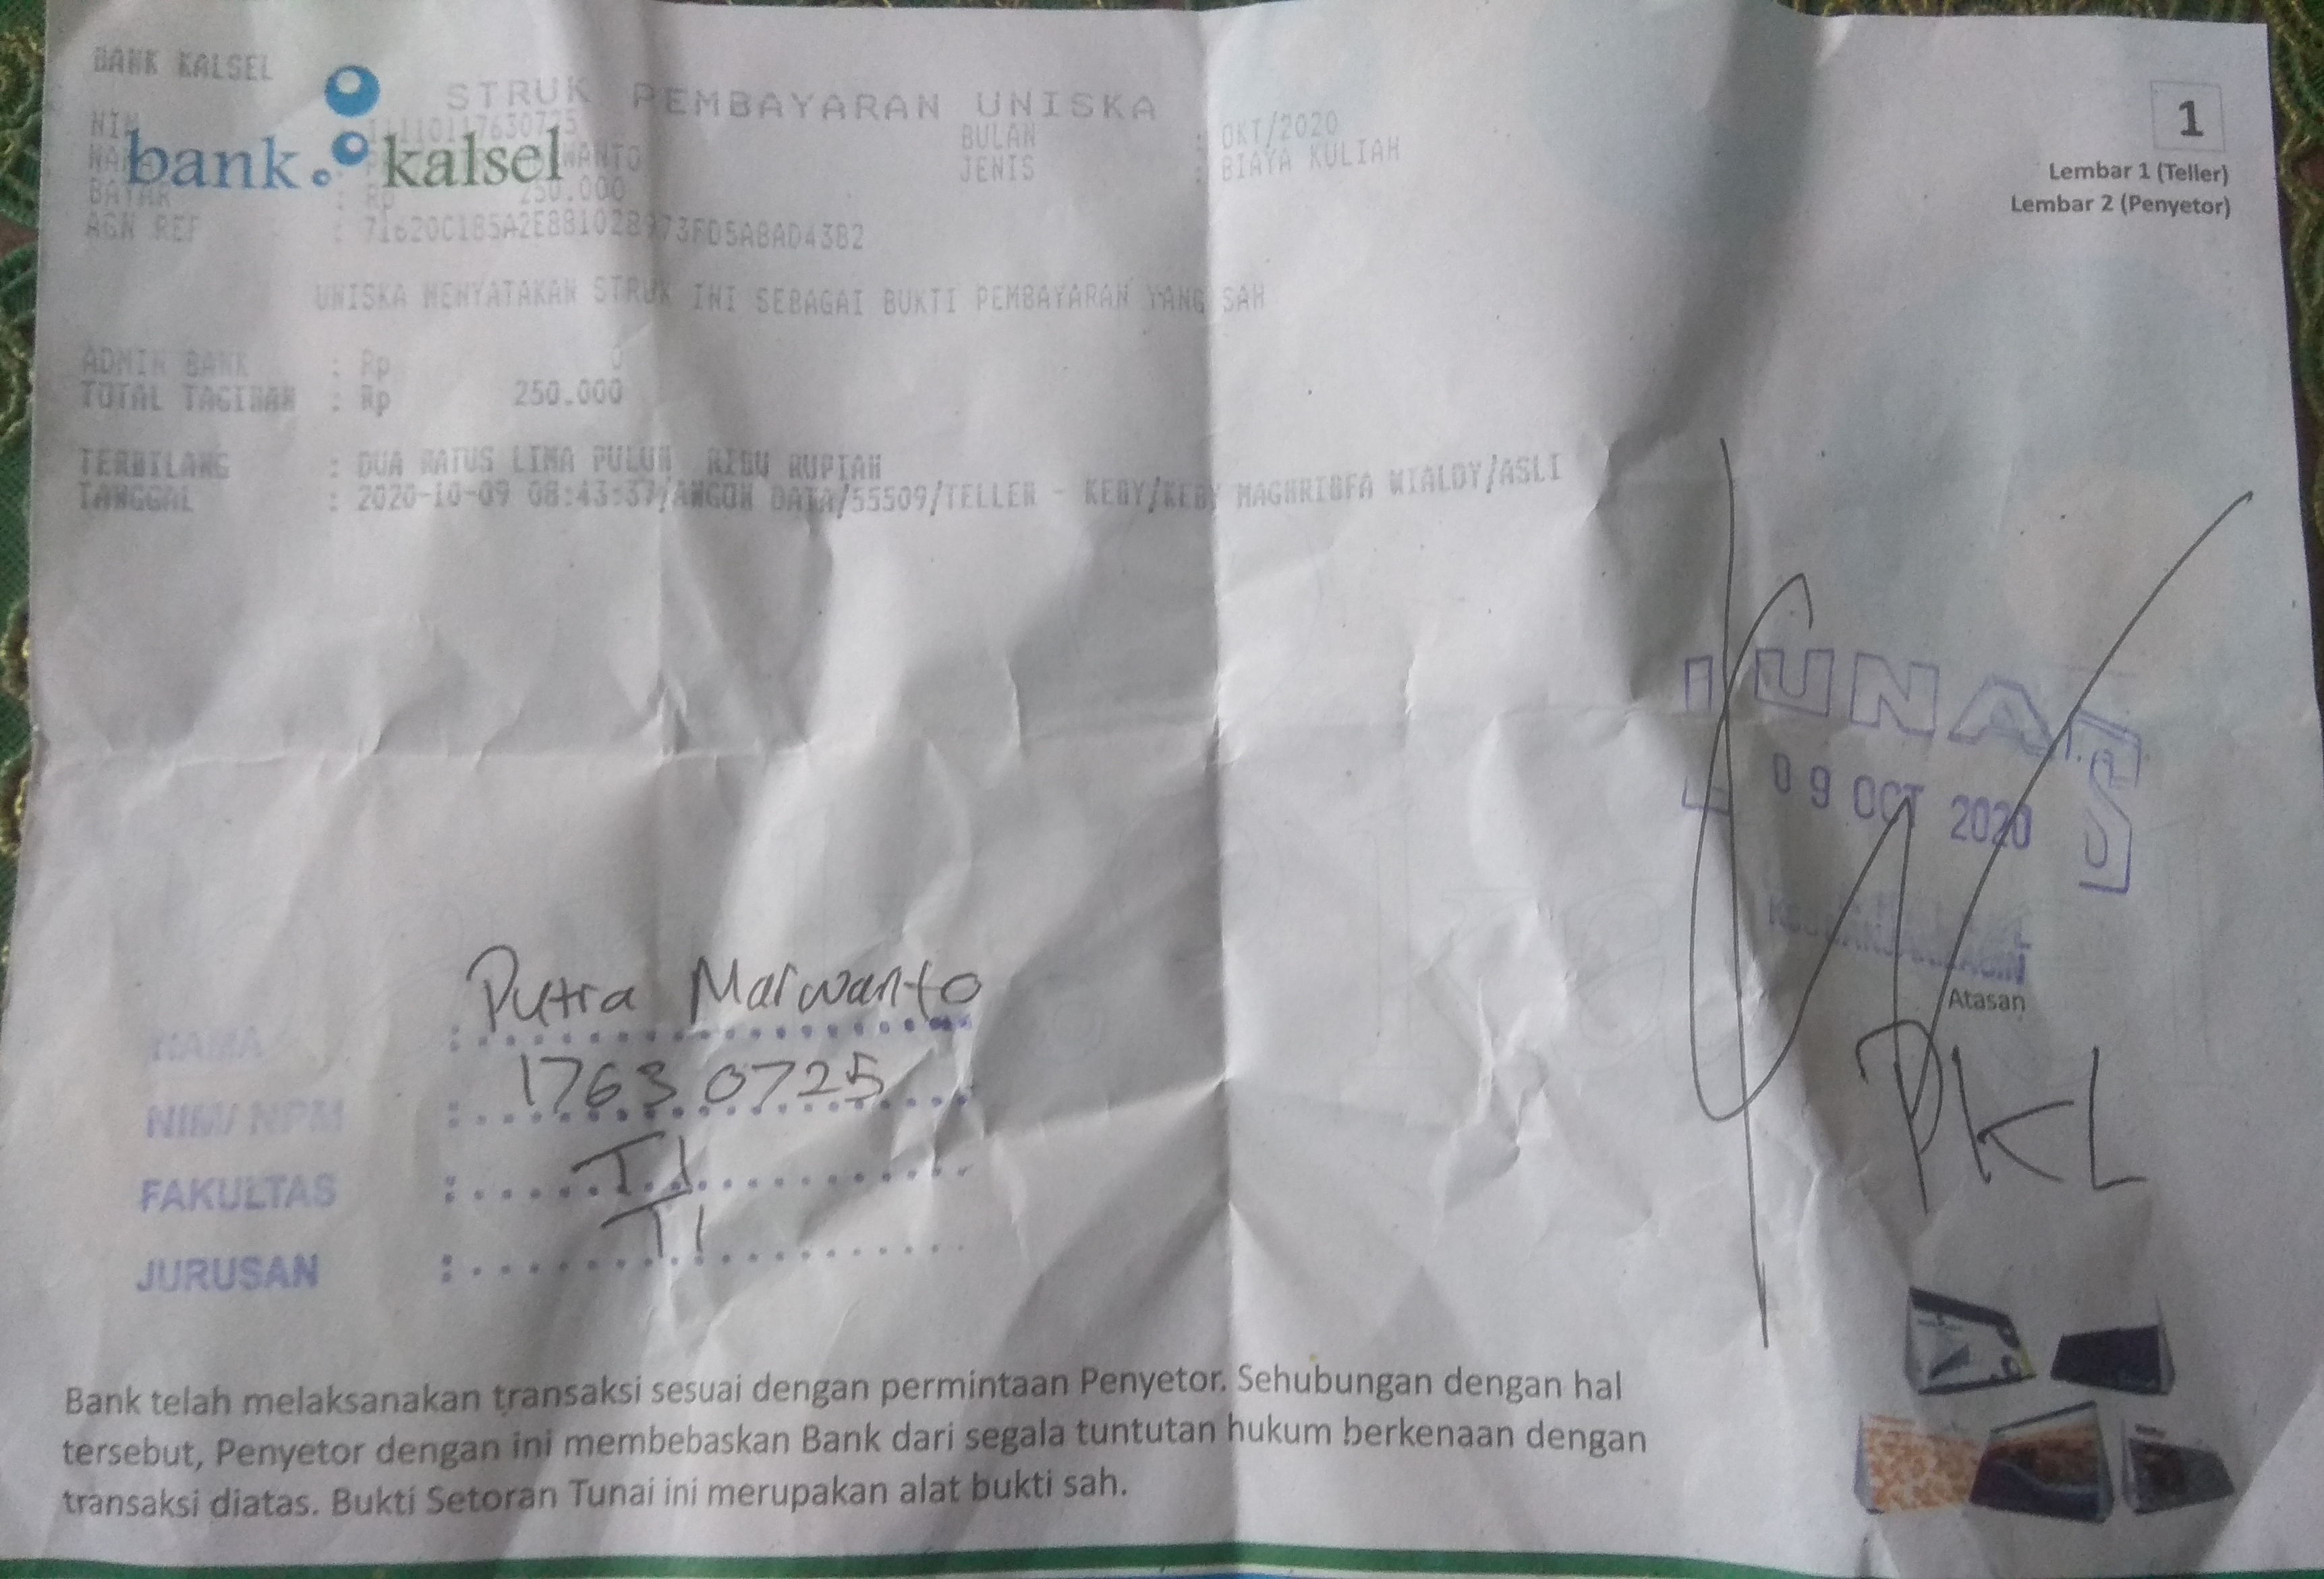 BANK KALSEL
STRUK PEMBAYARAN UNISKA
bank kalsel
NIM : 11110117630725
BULAN : OKT/2020
NAMA
JENIS : BIAYA KULIAH
BAYAR : Rp 250.000
AGN REF : 71620C185A2E881028973FD5A8AD4382
UNISKA MENYATAKAN STRUK INI SEBAGAI BUKTI PEMBAYARAN YANG SAH
ADMIN BANK : Rp 0
TOTAL TAGIHAN : Rp 250.000
TERBILANG : DUA RATUS LIMA PULUH RIBU RUPIAH
TANGGAL : 2020-10-09 08:43:37/ANGON DATA/55509/TELLER - KEBY/KEBY MAGHRIBFA WIALDY/ASLI
1
Lembar 1 (Teller)
Lembar 2 (Penyetor)
LUNAS
09 OCT 2020
Atasan
PKL
NAMA : Putra Marwanto
NIM/ NPM : 1763 0725
FAKULTAS : TI
JURUSAN : TI
Bank telah melaksanakan transaksi sesuai dengan permintaan Penyetor. Sehubungan dengan hal
tersebut, Penyetor dengan ini membebaskan Bank dari segala tuntutan hukum berkenaan dengan
transaksi diatas. Bukti Setoran Tunai ini merupakan alat bukti sah.